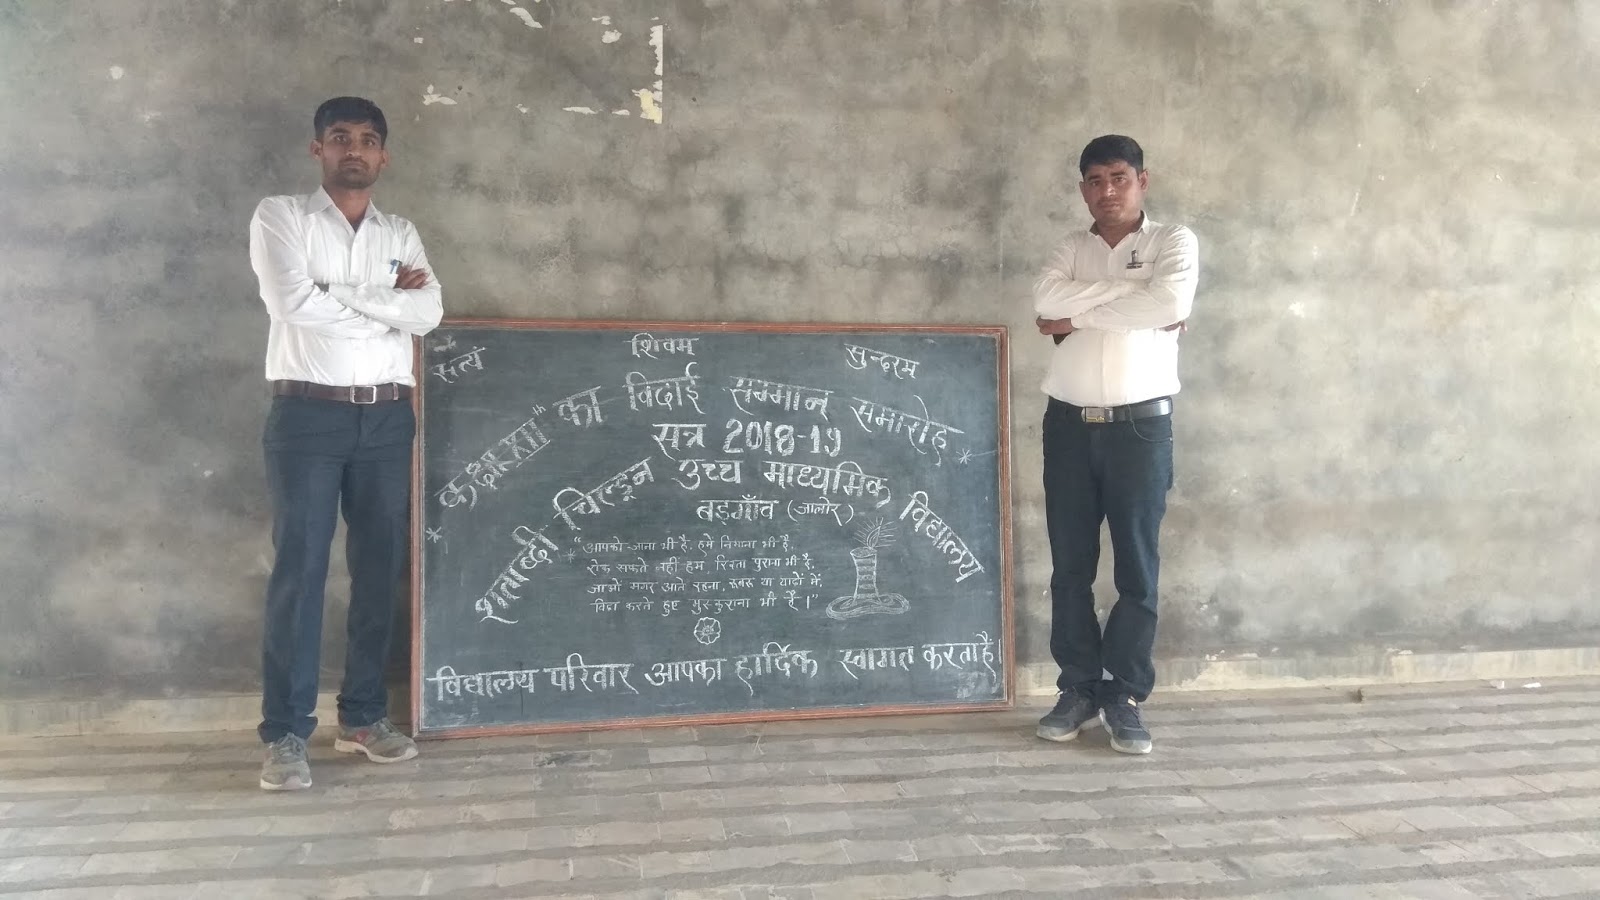 सत्यं शिवम् सुन्दरम
कक्षा 12th का विदाई सम्मान समारोह
सत्र 2018-19
शताब्दी चिल्ड्रन उच्च माध्यमिक विद्यालय
बड़गाँव (जालोर)
"आपको जाना भी है, हमे निभाना भी है,
रोक सकते नहीं हम, रिश्ता पुराना भी है,
जाओ मगर आते रहना, रूबरू या यादों में,
विदा करते हुए मुस्कुराना भी है।"
विद्यालय परिवार आपका हार्दिक स्वागत करता हैं।